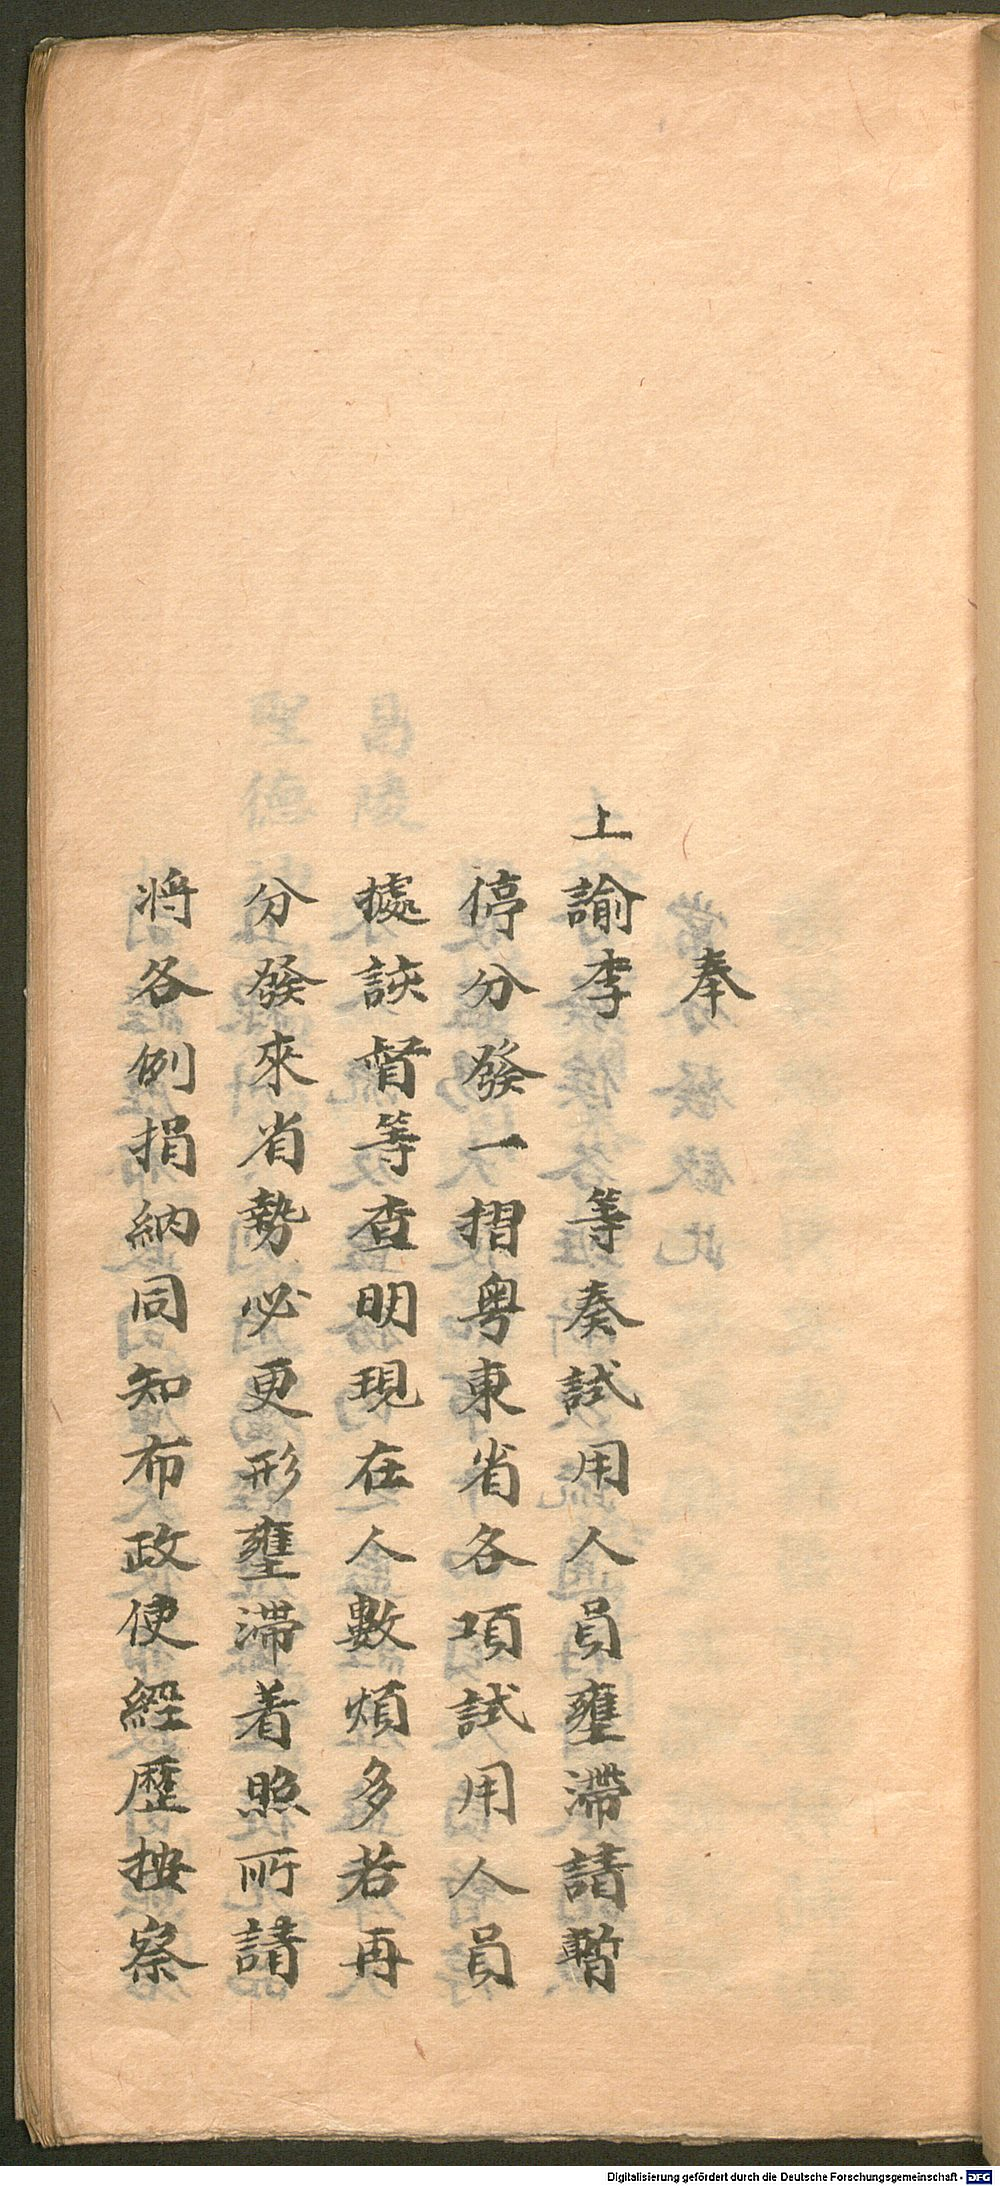 奉
上諭李　　等奏試用人員壅滯請暫
停分發一摺粵東省各項試用人員
據該督等查明現在人數煩多若再
分發來省勢必更形壅滯着照所請
將各例捐納同知布政使經歷按察
Digitalisierung gefördert durch die Deutsche Forschungsgemeinschaft - DFG